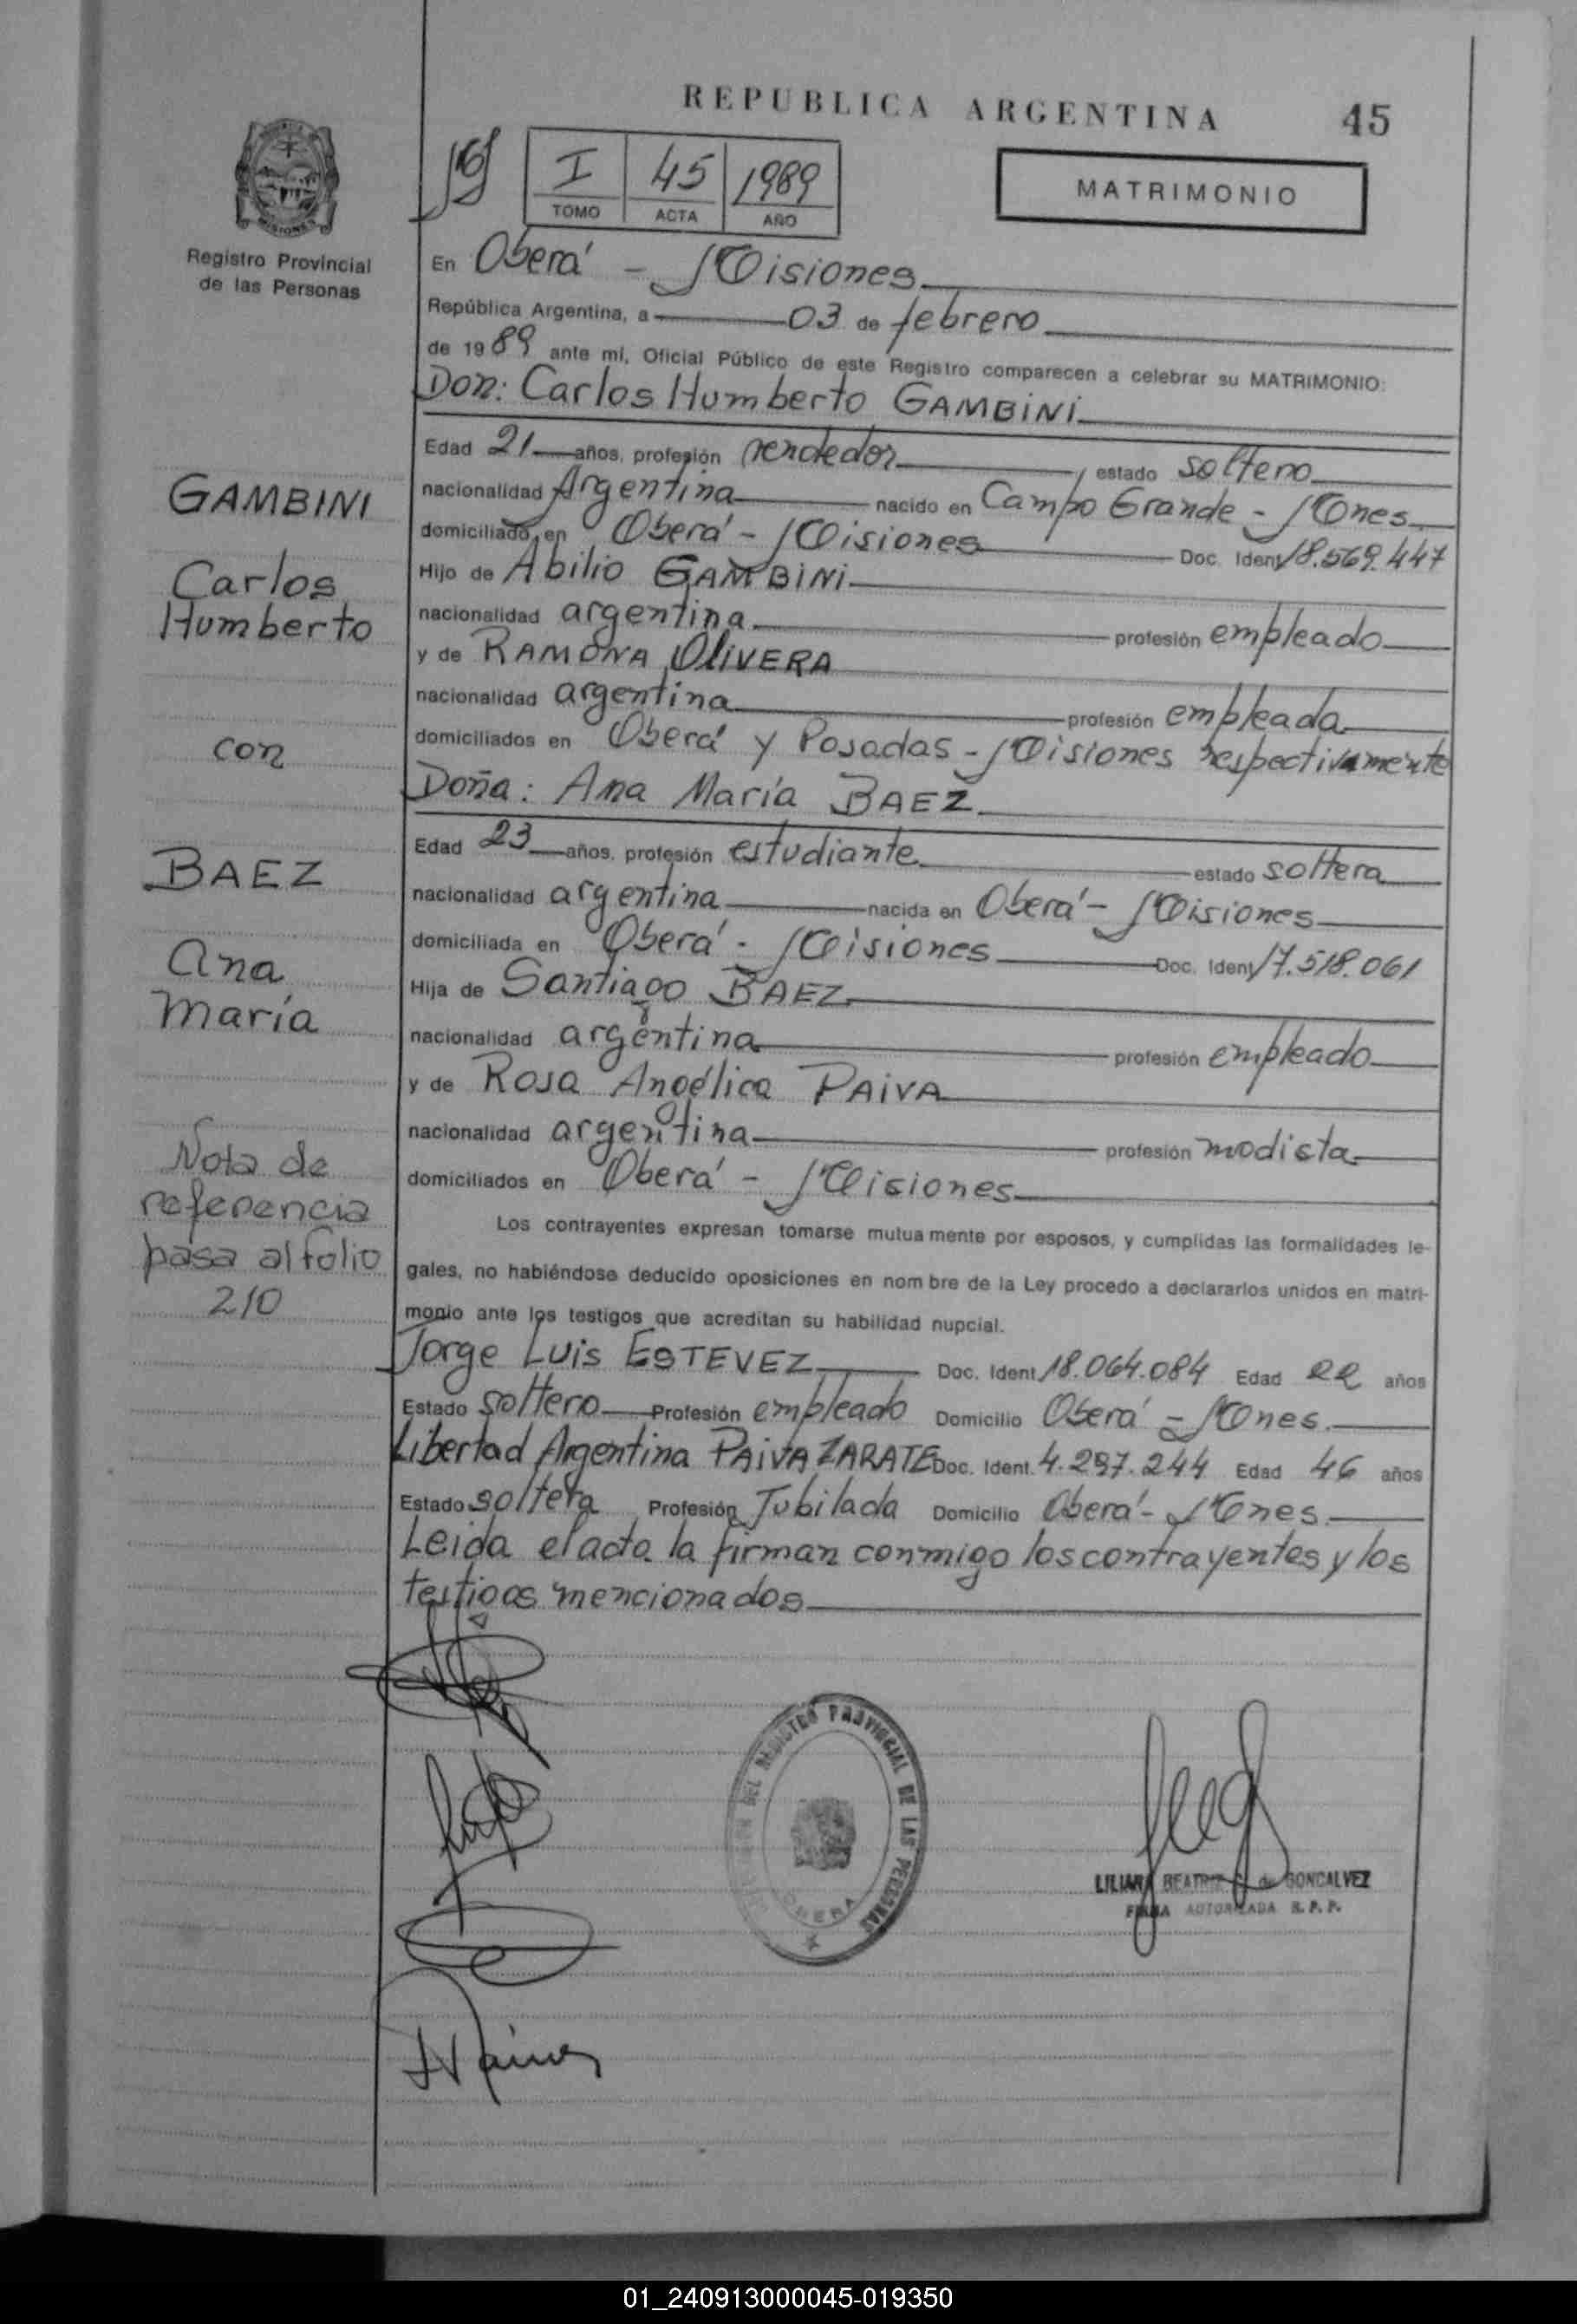 REPUBLICA ARGENTINA 45
I 45 1989
TOMO ACTA AÑO
MATRIMONIO
MISIONES
Registro Provincial
de las Personas
En Oberá - Misiones
República Argentina, a 03 de febrero
de 1989 ante mí, Oficial Público de este Registro comparecen a celebrar su MATRIMONIO:
Don: Carlos Humberto GAMBINI
Edad 21 años, profesión vendedor estado soltero
nacionalidad Argentina nacido en Campo Grande - Mnes
domiciliado en Oberá - Misiones Doc. Ident 18.569.447
Hijo de Abilio GAMBINI
nacionalidad argentina profesión empleado
y de RAMONA OLIVERA
nacionalidad argentina profesión empleada
domiciliados en Oberá y Posadas - Misiones respectivamente
Doña: Ana María BAEZ
Edad 23 años, profesión estudiante estado soltera
nacionalidad argentina nacida en Oberá - Misiones
domiciliada en Oberá - Misiones Doc. Ident 17.518.061
Hija de Santiago BAEZ
nacionalidad argentina profesión empleado
y de Rosa Angélica PAIVA
nacionalidad argentina profesión modista
domiciliados en Oberá - Misiones
Los contrayentes expresan tomarse mutua mente por esposos, y cumplidas las formalidades le-
gales, no habiéndose deducido oposiciones en nom bre de la Ley procedo a declararlos unidos en matri-
monio ante los testigos que acreditan su habilidad nupcial.
Jorge Luis ESTEVEZ Doc. Ident 18.064.084 Edad 22 años
Estado soltero Profesión empleado Domicilio Oberá - Mnes.
Libertad Argentina PAIVA ZARATE Doc. Ident. 4.287.244 Edad 46 años
Estado soltera Profesión Jubilada Domicilio Oberá - Mnes.
Leida el acta la firman conmigo los contrayentes y los
testigos mencionados
GAMBINI
Carlos
Humberto
con
BAEZ
Ana
María
Nota de
referencia
pasa al folio
210
DEL REGISTRO PROVINCIAL DE LAS PERSONAS
OBERA
LILIANA BEATRIZ de GONCALVEZ
FIRMA AUTORIZADA R. P. P.
01_240913000045-019350